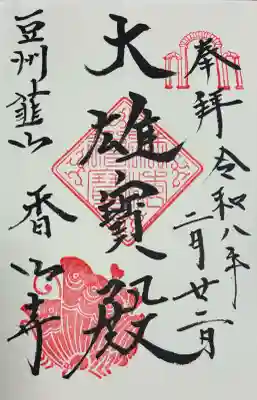 奉拝
令和八年
二月廿二日
大雄寳殿
豆州韮山
香山寺